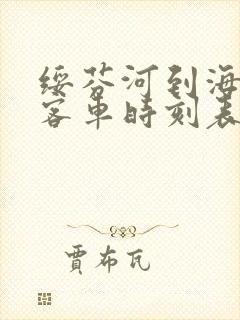 绥芬河到海
客车时刻表
贾布瓦